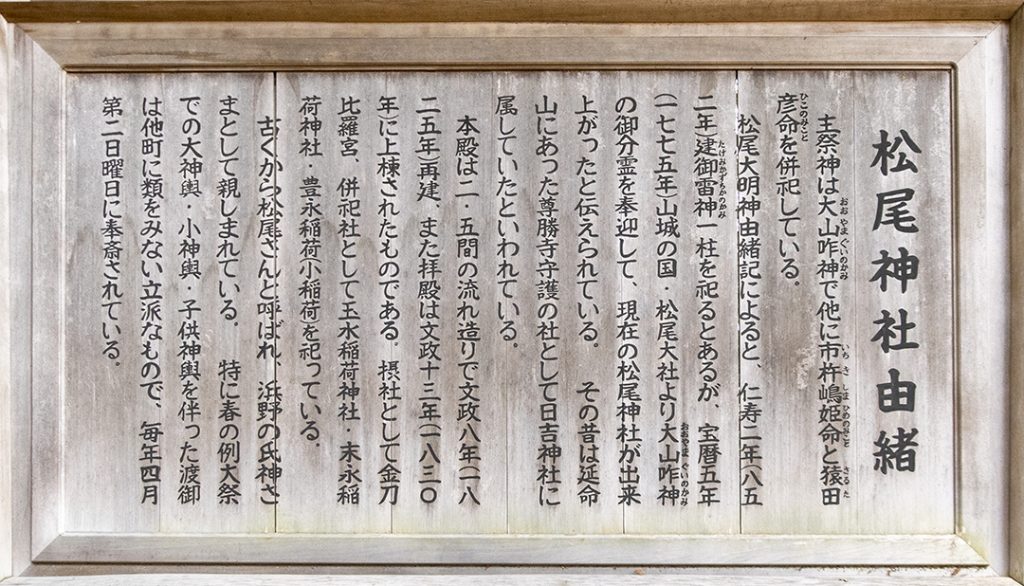 松尾神社由緒
主祭神は大山咋神で他に市杵嶋姫命と猿田
彦命を併祀している。
松尾大明神由緒記によると、仁寿二年(八五
二年)建御雷神一柱を祀るとあるが、宝暦五年
(一七七五年)山城の国・松尾大社より大山咋神
の御分霊を奉迎して、現在の松尾神社が出来
上がったと伝えられている。　その昔は延命
山にあった尊勝寺守護の社として日吉神社に
属していたといわれている。
本殿は二・五間の流れ造りで文政八年(一八
二五年)再建、また拝殿は文政十三年(一八三〇
年)に上棟されたものである。摂社として金刀
比羅宮、併祀社として玉水稲荷神社・末永稲
荷神社・豊永稲荷小稲荷を祀っている。
古くから松尾さんと呼ばれ、浜野の氏神さ
まとして親しまれている。　特に春の例大祭
での大神輿・小神輿・子供神輿を伴った渡御
は他町に類をみない立派なもので、毎年四月
第二日曜日に奉斎されている。